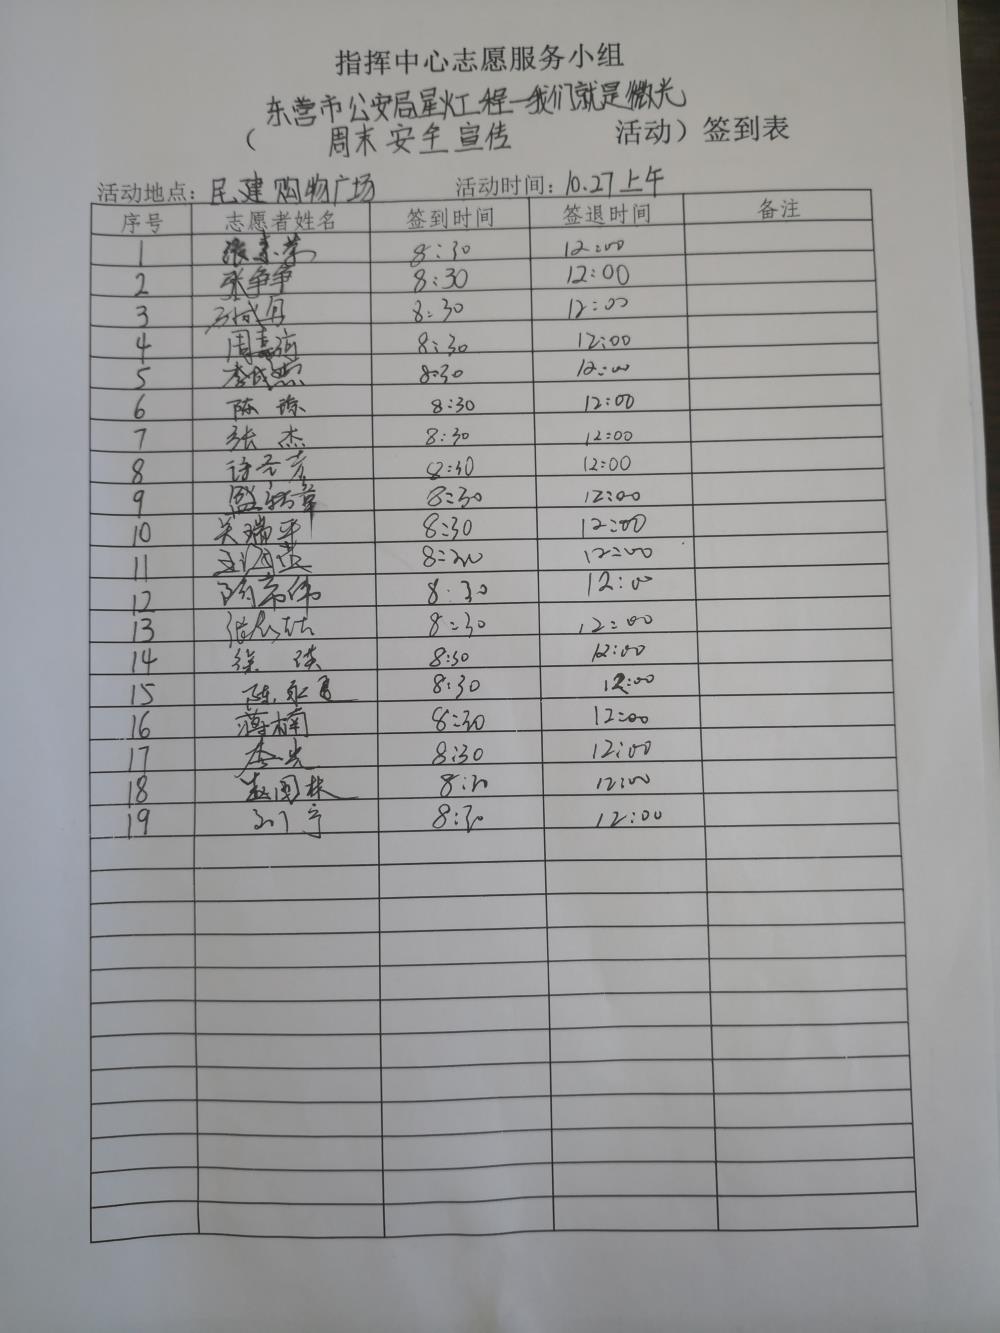 指挥中心志愿服务小组
东营市公安局星火工程—我们就是微光
（ 周末安全宣传 活动）签到表
活动地点：民建购物广场 活动时间：10.27上午
序号 志愿者姓名 签到时间 签退时间 备注
1 8:30 12:00
2 张争争 8:30 12:00
3 8:30 12:00
4 8:30 12:00
5 8:30 12:00
6 陈琼 8:30 12:00
7 张杰 8:30 12:00
8 8:30 12:00
9 8:30 12:00
10 吴瑞平 8:30 12:00
11 8:30 12:00
12 8:30 12:00
13 8:30 12:00
14 徐瑛 8:30 12:00
15 8:30 12:00
16 薄楠 8:30 12:00
17 李光 8:30 12:00
18 赵国栋 8:30 12:00
19 8:30 12:00